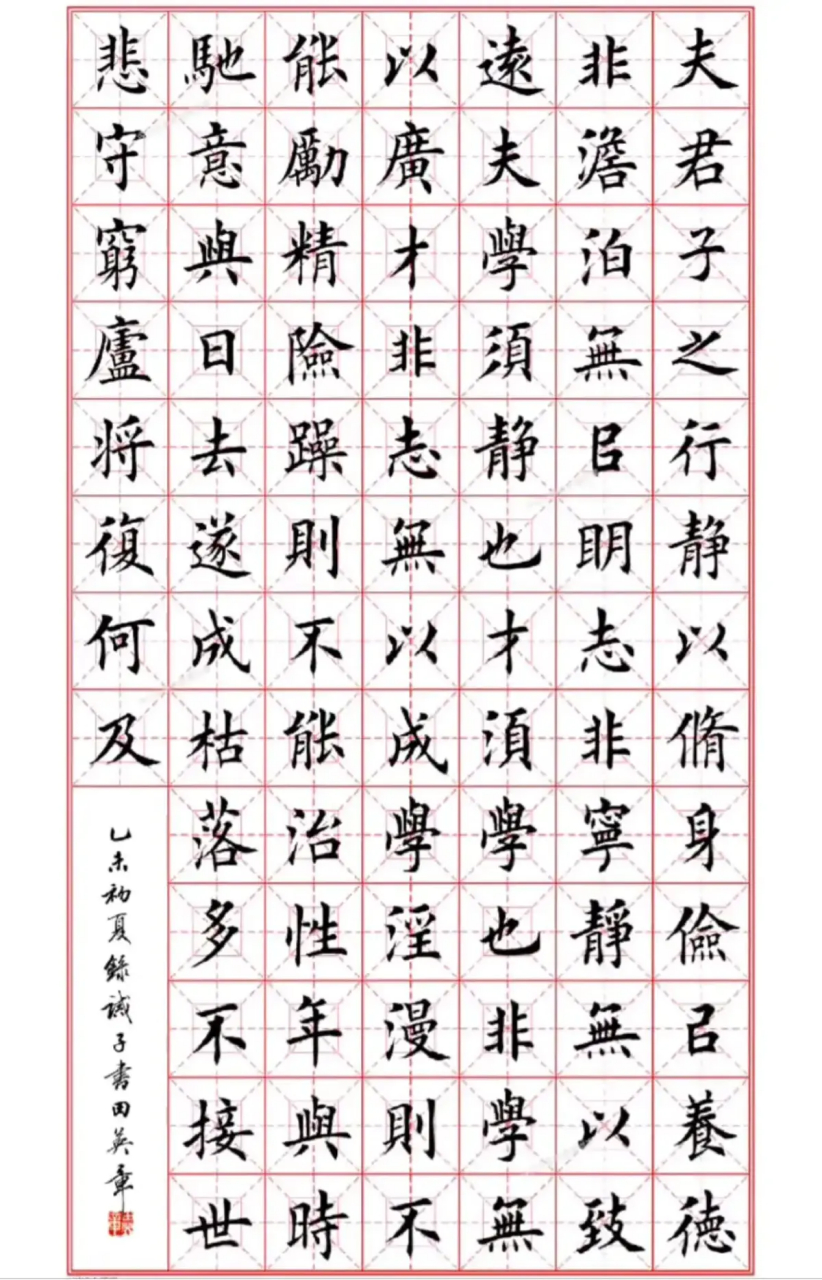 夫君子之行静以脩身儉㠯養德
非澹泊無㠯明志非寧靜無以致
遠夫學須静也才須學也非學無
以廣才非志無以成學淫漫則不
能勵精險躁則不能治性年與時
馳意與日去遂成枯落多不接世
悲守窮廬将復何及
乙未初夏錄誡子書田英章